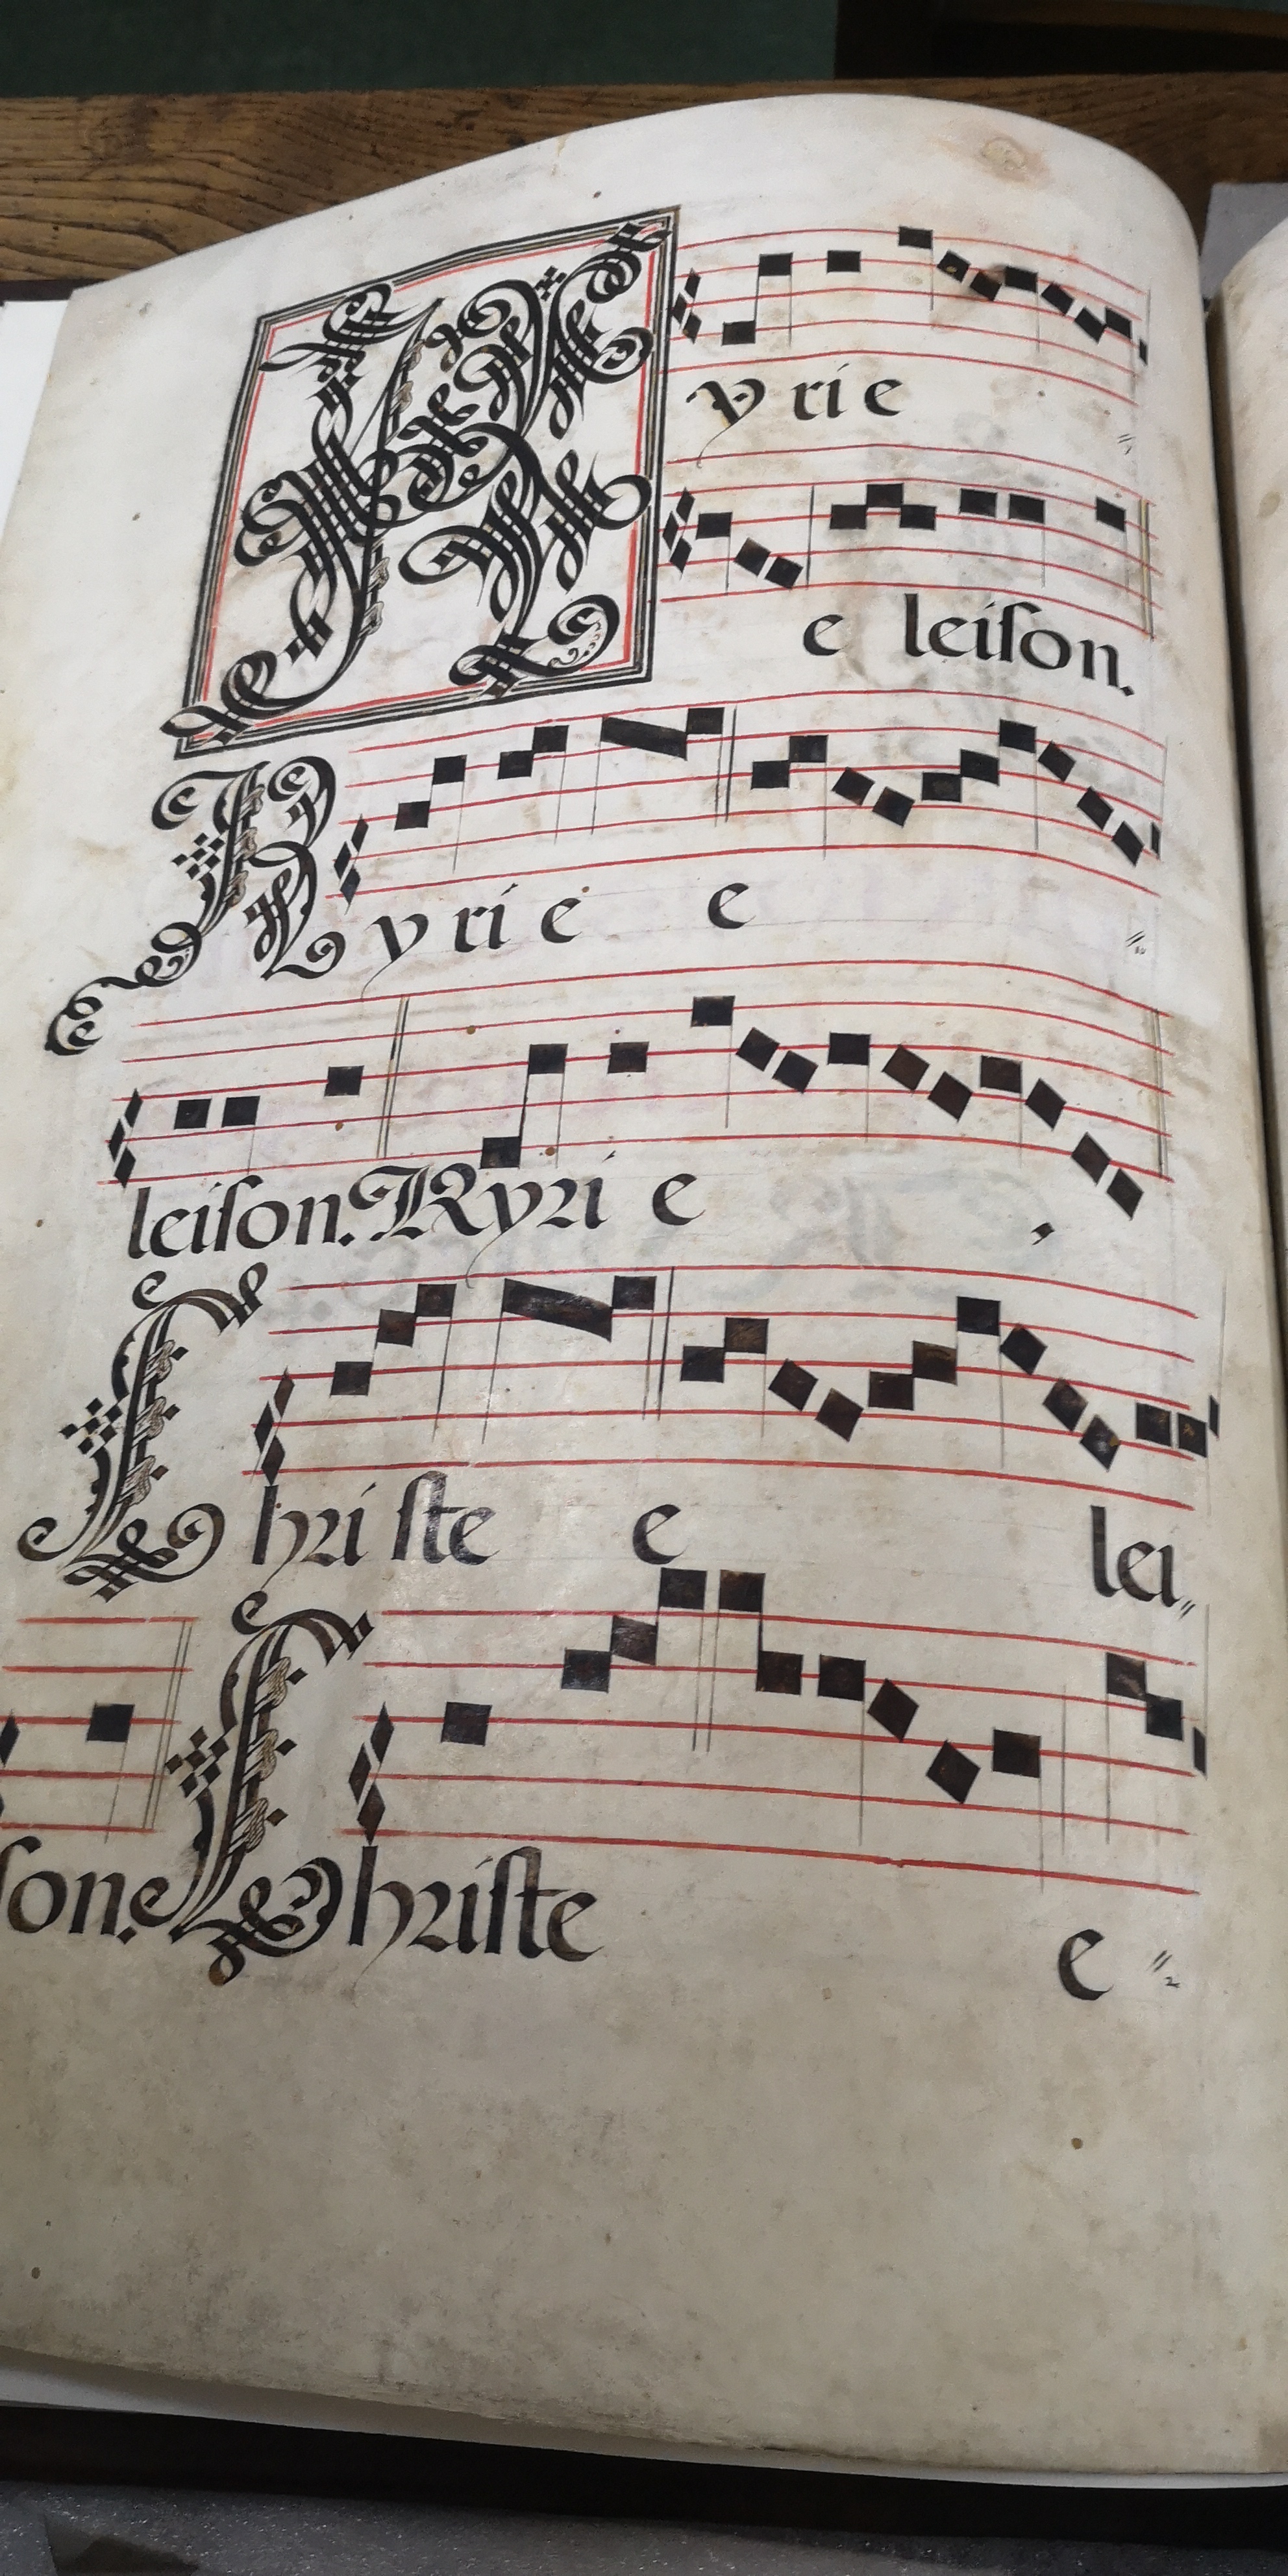 Kyrie
eleiſon.
Kyrie e
leiſon. Kyri e
Chriſte e lei
ſon. Chriſte e